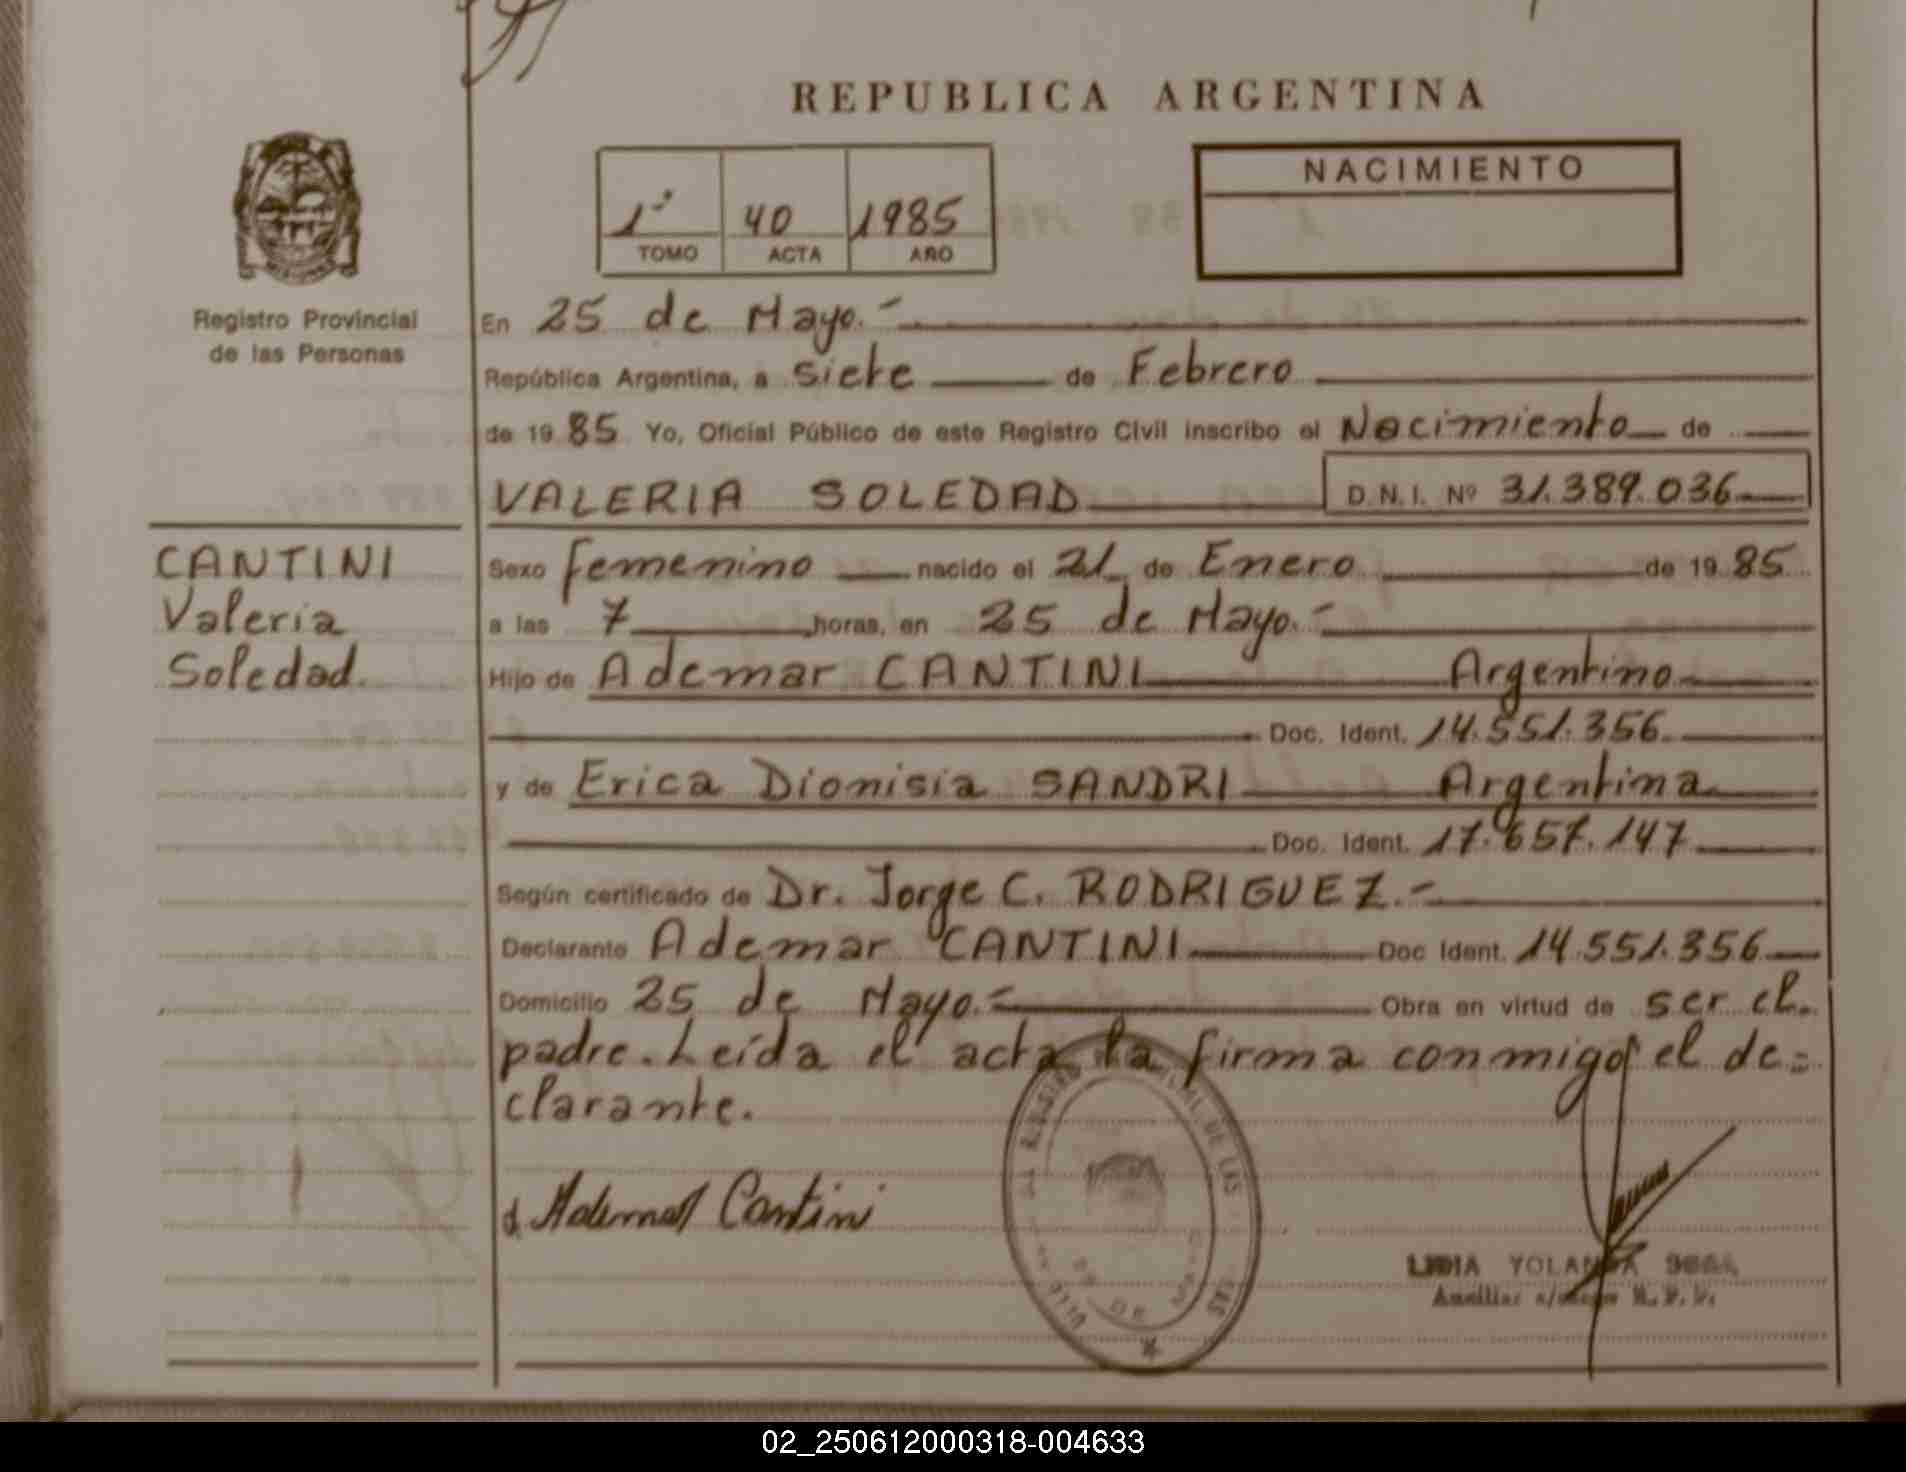 REPUBLICA ARGENTINA
1º 40 1985
TOMO ACTA AÑO
NACIMIENTO
Registro Provincial
de las Personas
En 25 de Mayo.-
República Argentina, a siete de Febrero
de 19 85 Yo, Oficial Público de este Registro Civil inscribo el Nacimiento de
VALERIA SOLEDAD D.N.I. Nº 31.389.036
CANTINI
Valeria
Soledad
Sexo femenino nacido el 21 de Enero de 19 85
a las 7 horas, en 25 de Mayo.-
Hijo de Ademar CANTINI Argentino
Doc. Ident. 14.551.356
y de Erica Dionisia SANDRI Argentina
Doc. Ident. 17.657.147
Según certificado de Dr. Jorge C. RODRIGUEZ.-
Declarante Ademar CANTINI Doc Ident. 14.551.356
Domicilio 25 de Mayo.- Obra en virtud de ser el
padre. Leída el acta la firma conmigo el de=
clarante.
Ademar Cantini
YOLANDA
Auxiliar
02_250612000318-004633